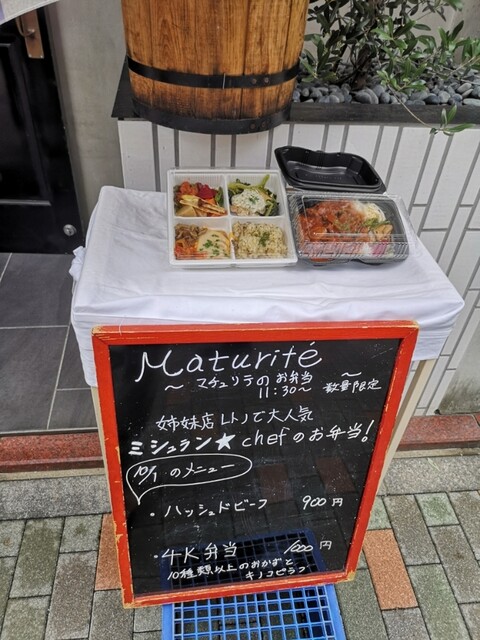 Maturité
~ マチュリテのお弁当 ~
11:30~ 数量限定
姉妹店レトノで大人気
ミシュラン★chefのお弁当!
10/1 のメニュー
・ハッシュドビーフ 900円
・4K弁当 1000円
10種類以上のおかずと
キノコピラフ